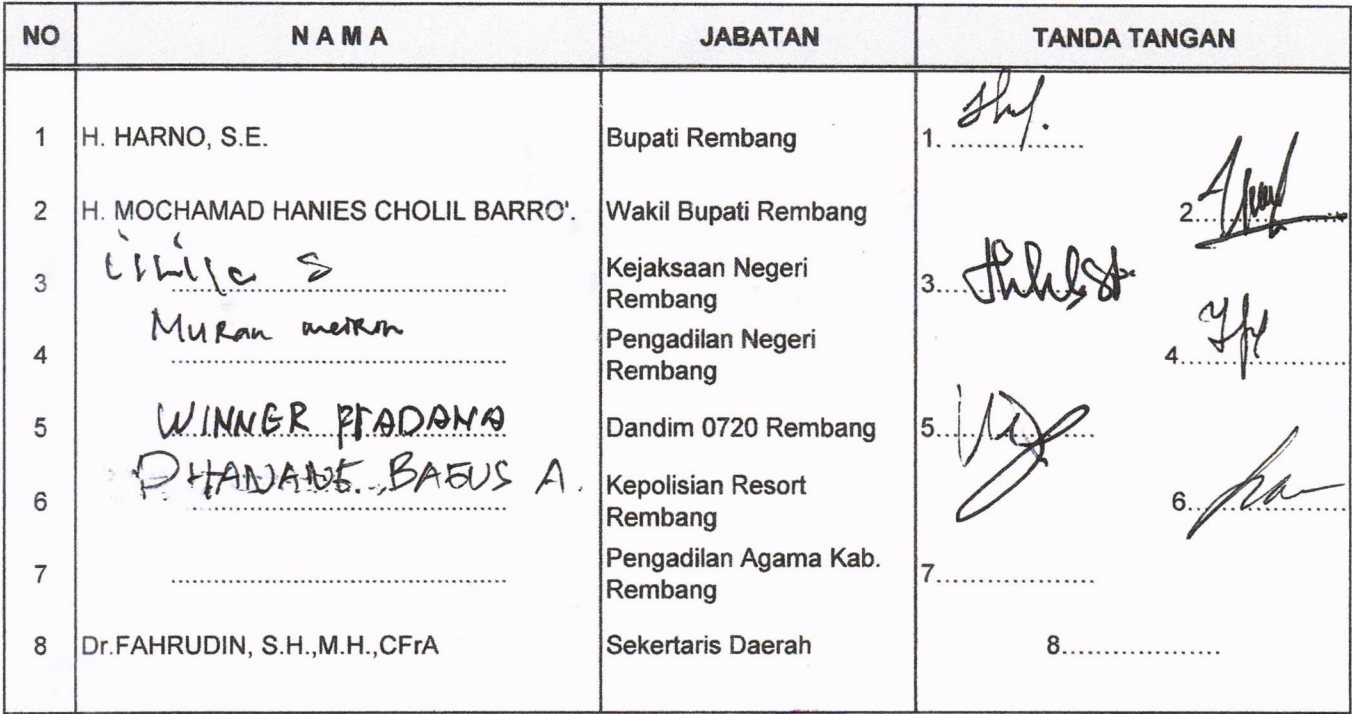 NO NAMA JABATAN TANDA TANGAN
1 H. HARNO, S.E. Bupati Rembang 1. ................
2 H. MOCHAMAD HANIES CHOLIL BARRO'. Wakil Bupati Rembang 2....................
3 Kejaksaan Negeri 3....................
Rembang
4 Pengadilan Negeri 4....................
Rembang
5 WINNER Dandim 0720 Rembang 5....................
6 BAGUS A. Kepolisian Resort 6....................
Rembang
7 .......................................... Pengadilan Agama Kab. 7....................
Rembang
8 Dr.FAHRUDIN, S.H.,M.H.,CFrA Sekertaris Daerah 8....................